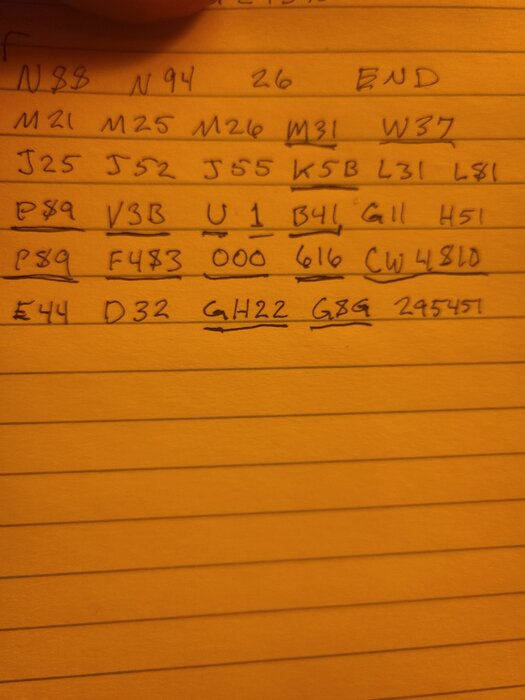 N88 N94 26 END
M21 M25 M26 M31 W37
J25 J52 J55 K5B L31 L81
P89 V3B U 1 B41 G11 H51
P89 F483 000 616 CW4810
E44 D32 GH22 G8G 295451